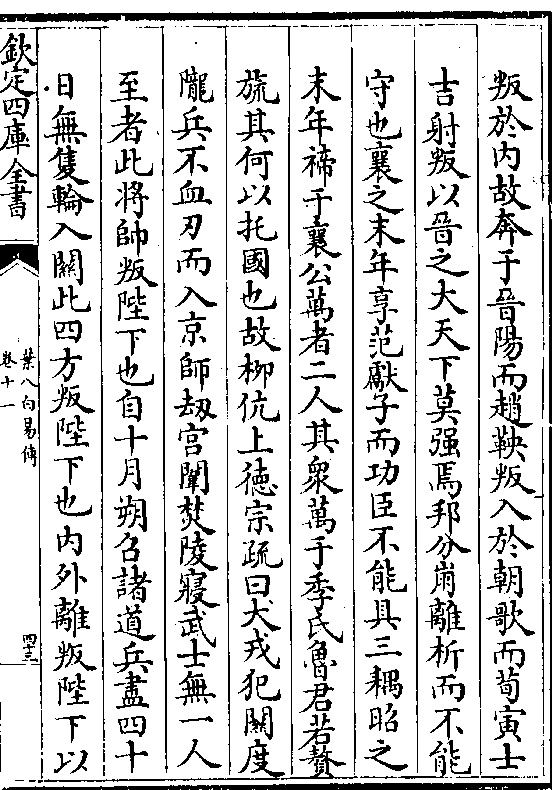 叛於内故奔于晉陽而趙鞅叛入於朝歌而荀寅士
吉射叛以晉之大天下莫强焉邦分崩離析而不能
守也襄之末年享范獻子而功臣不能具三耦昭之
末年禘于襄公萬者二人其衆萬于季氏魯君若贅
旒其何以托國也故柳伉上德宗疏曰犬戎犯關度
隴兵不血刃而入京師刼宫闈焚陵寢武士無一人
至者此将帥叛陛下也自十月朔召諸道兵盡四十
日無隻輪入關此四方叛陛下也内外離叛陛下以
欽定四庫全書
葉八白易傳
卷十一
四十三